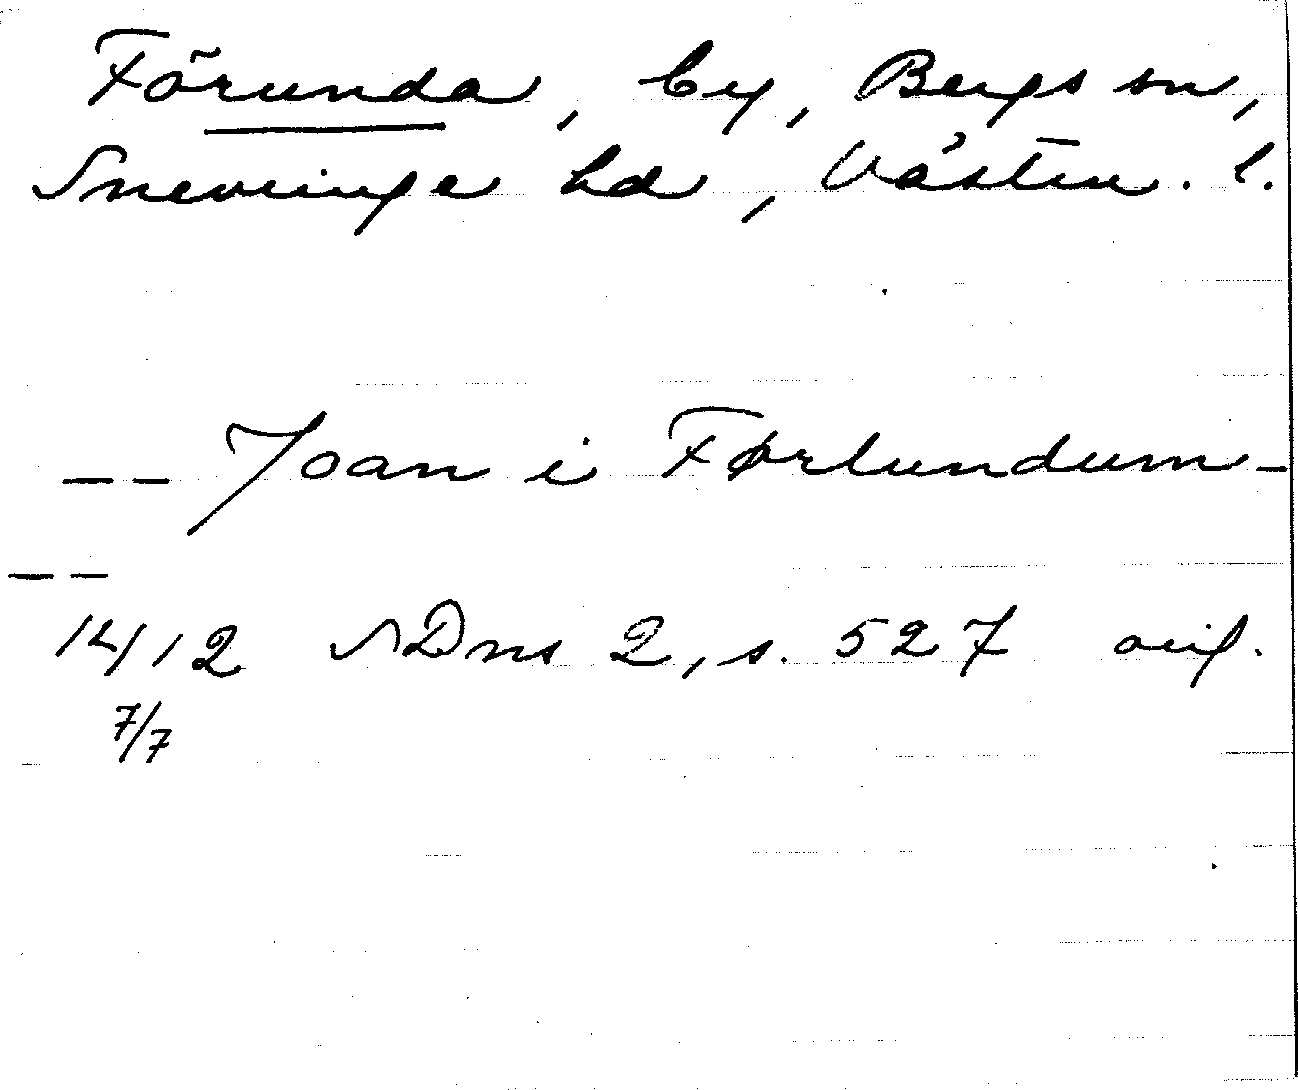 Förunda, by, Bergs sn,
Snevringe hd, Västm. l.
— — Joan i Førlundum —
— —
1412 SDns 2, s. 527 orig.
7/7